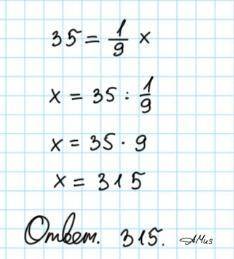 35 = 1/9 x
x = 35 : 1/9
x = 35 · 9
x = 315
Ответ. 315.